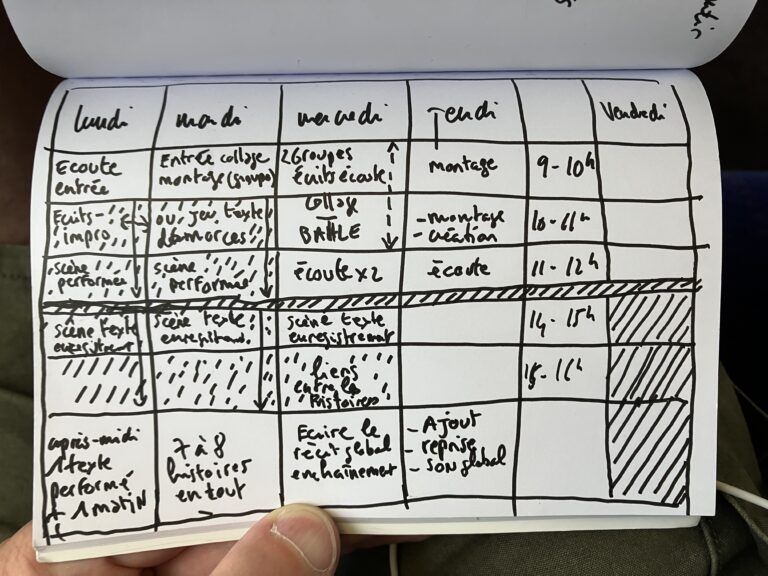 lundi
mardi
mercredi
Jendi
Vendredi
Ecoute
entrée
Entrée collage
montage (groupe)
2 Groupes
écrits écoute
montage
9 - 10h
Ecrits -
impro
ou jeu texte
démarces
collage
BATTLE
- montage
- création
10 - 11h
scène
performée
scène
performée
écoute x2
écoute
11 - 12h
scène texte
enregistrement
scène texte
enregistrem.
scène texte
enregistrement
14 - 15h
liens
entre les
histoires
15 - 16h
après-midi
1 texte
performé
+ 1 matin
7 à 8
histoires
en tout
Ecrire le
récit global
enchaînement
- Ajout
- reprise
- son global